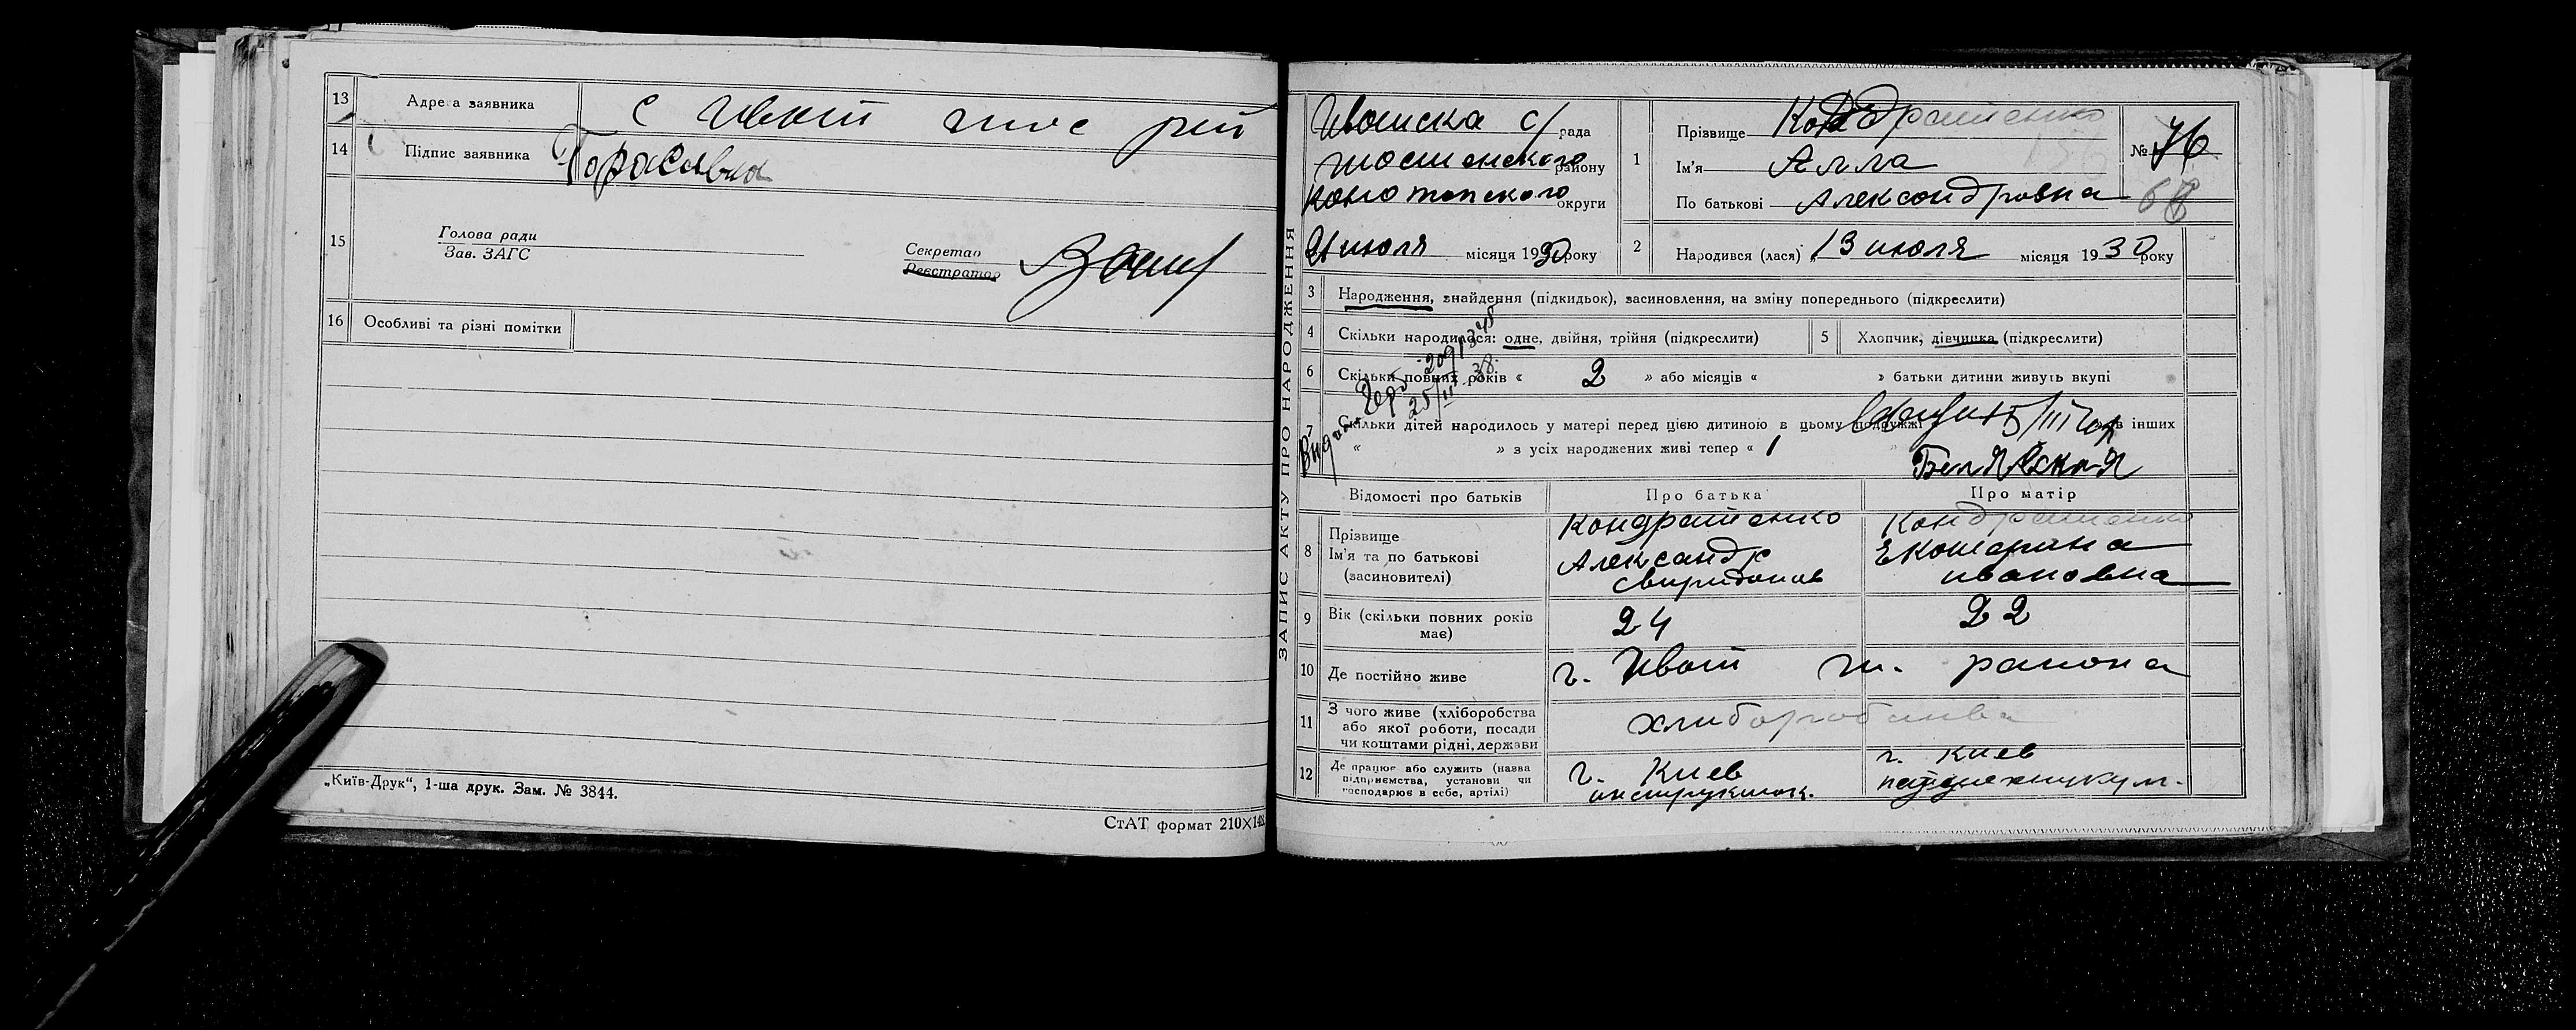 13 Адреса заявника с Ивот
14 Підпис заявника
15 Голова ради
Зав. ЗАГС
Секретар
Реєстратор
16 Особливі та різні помітки
„Київ-Друк“, 1-ша друк. Зам. № 3844.
СтАТ формат 210×148
ЗАПИС АКТУ ПРО НАРОДЖЕННЯ
Ивотска с/рада
району
Конотопского округи
21 июля місяця 1930 року
1 Прізвище Кондратенко
Ім'я Алла
По батькові Александровна
№ 76
68
2 Народився (лася) „13 июля місяця 1930 року
3 Народження, знайдення (підкидьок), засиновлення, на зміну попереднього (підкреслити)
4 Скільки народилося: одне, двійня, трійня (підкреслити)
5 Хлопчик, дівчинка (підкреслити)
6 Скільки повних років « 2 » або місяців « » батьки дитини живуть вкупі
7 Скільки дітей народилось у матері перед цією дитиною в цьому подружжі в інших
« » з усіх народжених живі тепер « 1
Відомості про батьків Про батька Про матір
8 Прізвище Кондратенко Кондратенко
Ім'я та по батькові Александр Екотерина
(засиновителі) Свиридонов ивановна
9 Вік (скільки повних років має) 24 22
10 Де постійно живе Ивот ш. района
11 З чого живе (хліборобства
або якої роботи, посади
чи коштами рідні, держави
хлиборобства
12 Де працює або служить (назва
підприємства, установи чи
господарює в себе, артілі)
г. Киев
г. Киев